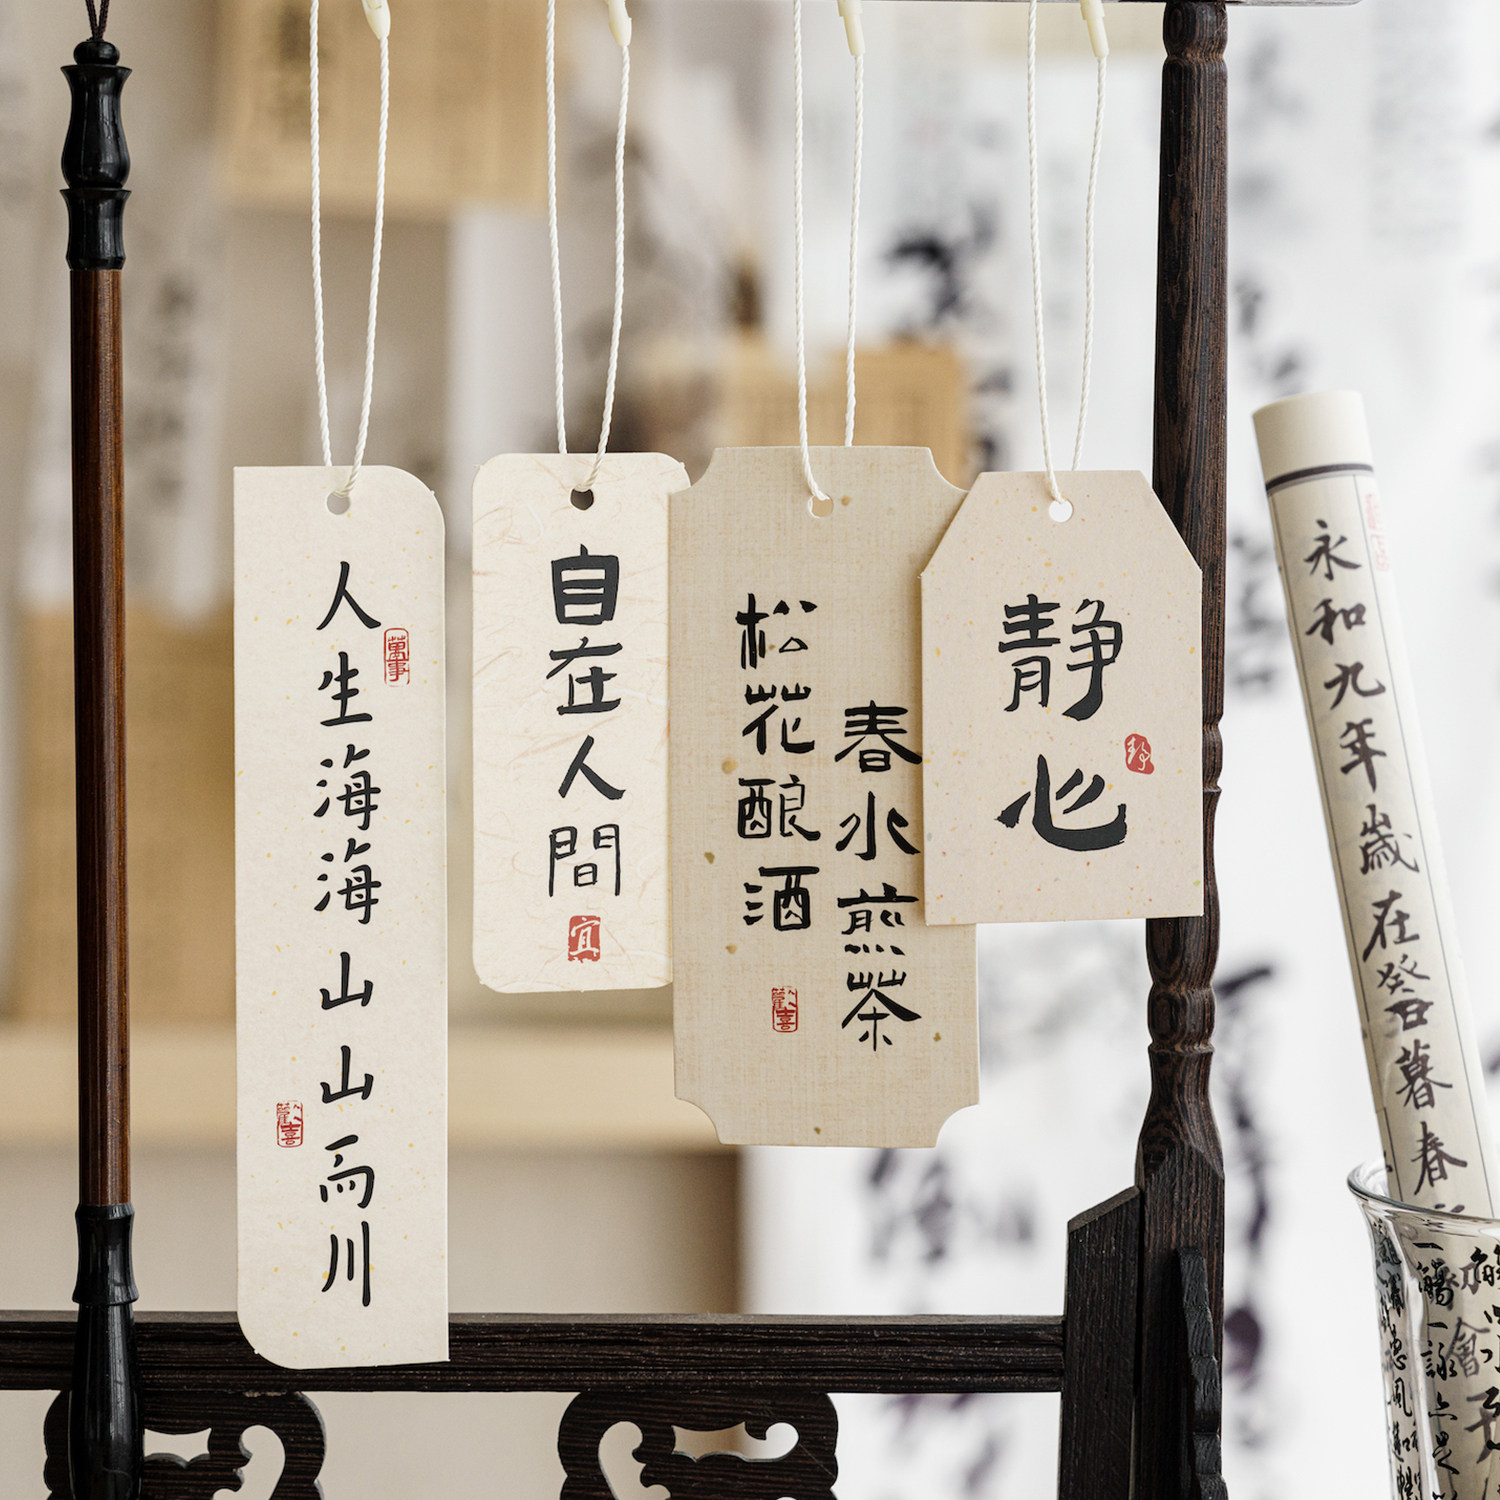 人生海海山山而川
萬事
歡喜
自在人間
宜
松花酿酒
春水煎茶
歡喜
静心
静
永和九年歲在癸丑暮春
一觴一詠亦足以